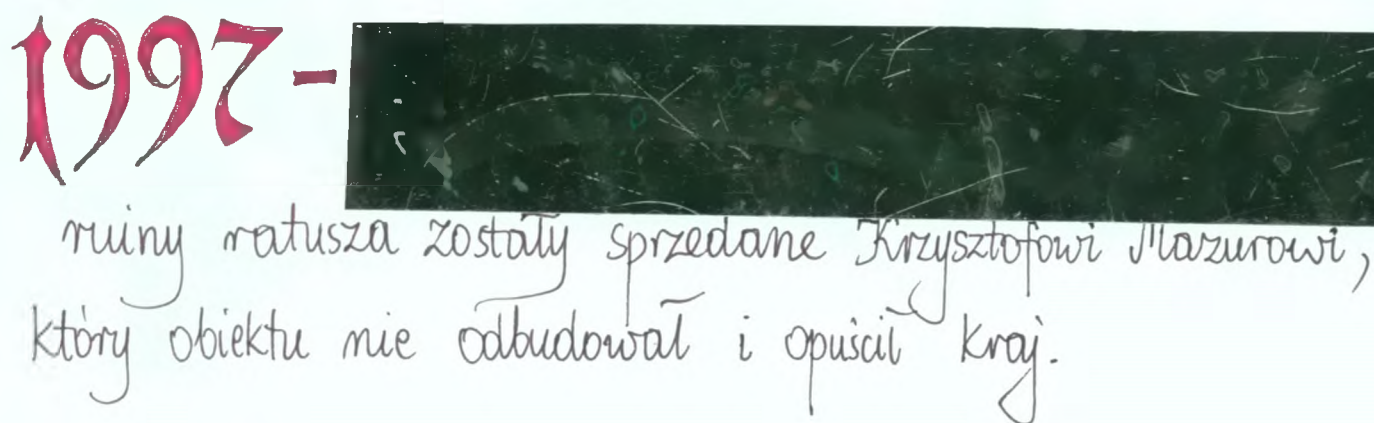 1997-
ruiny ratusza zostały sprzedane Krzysztofowi Mazurowi,
który obiektu nie odbudował i opuścił kraj.